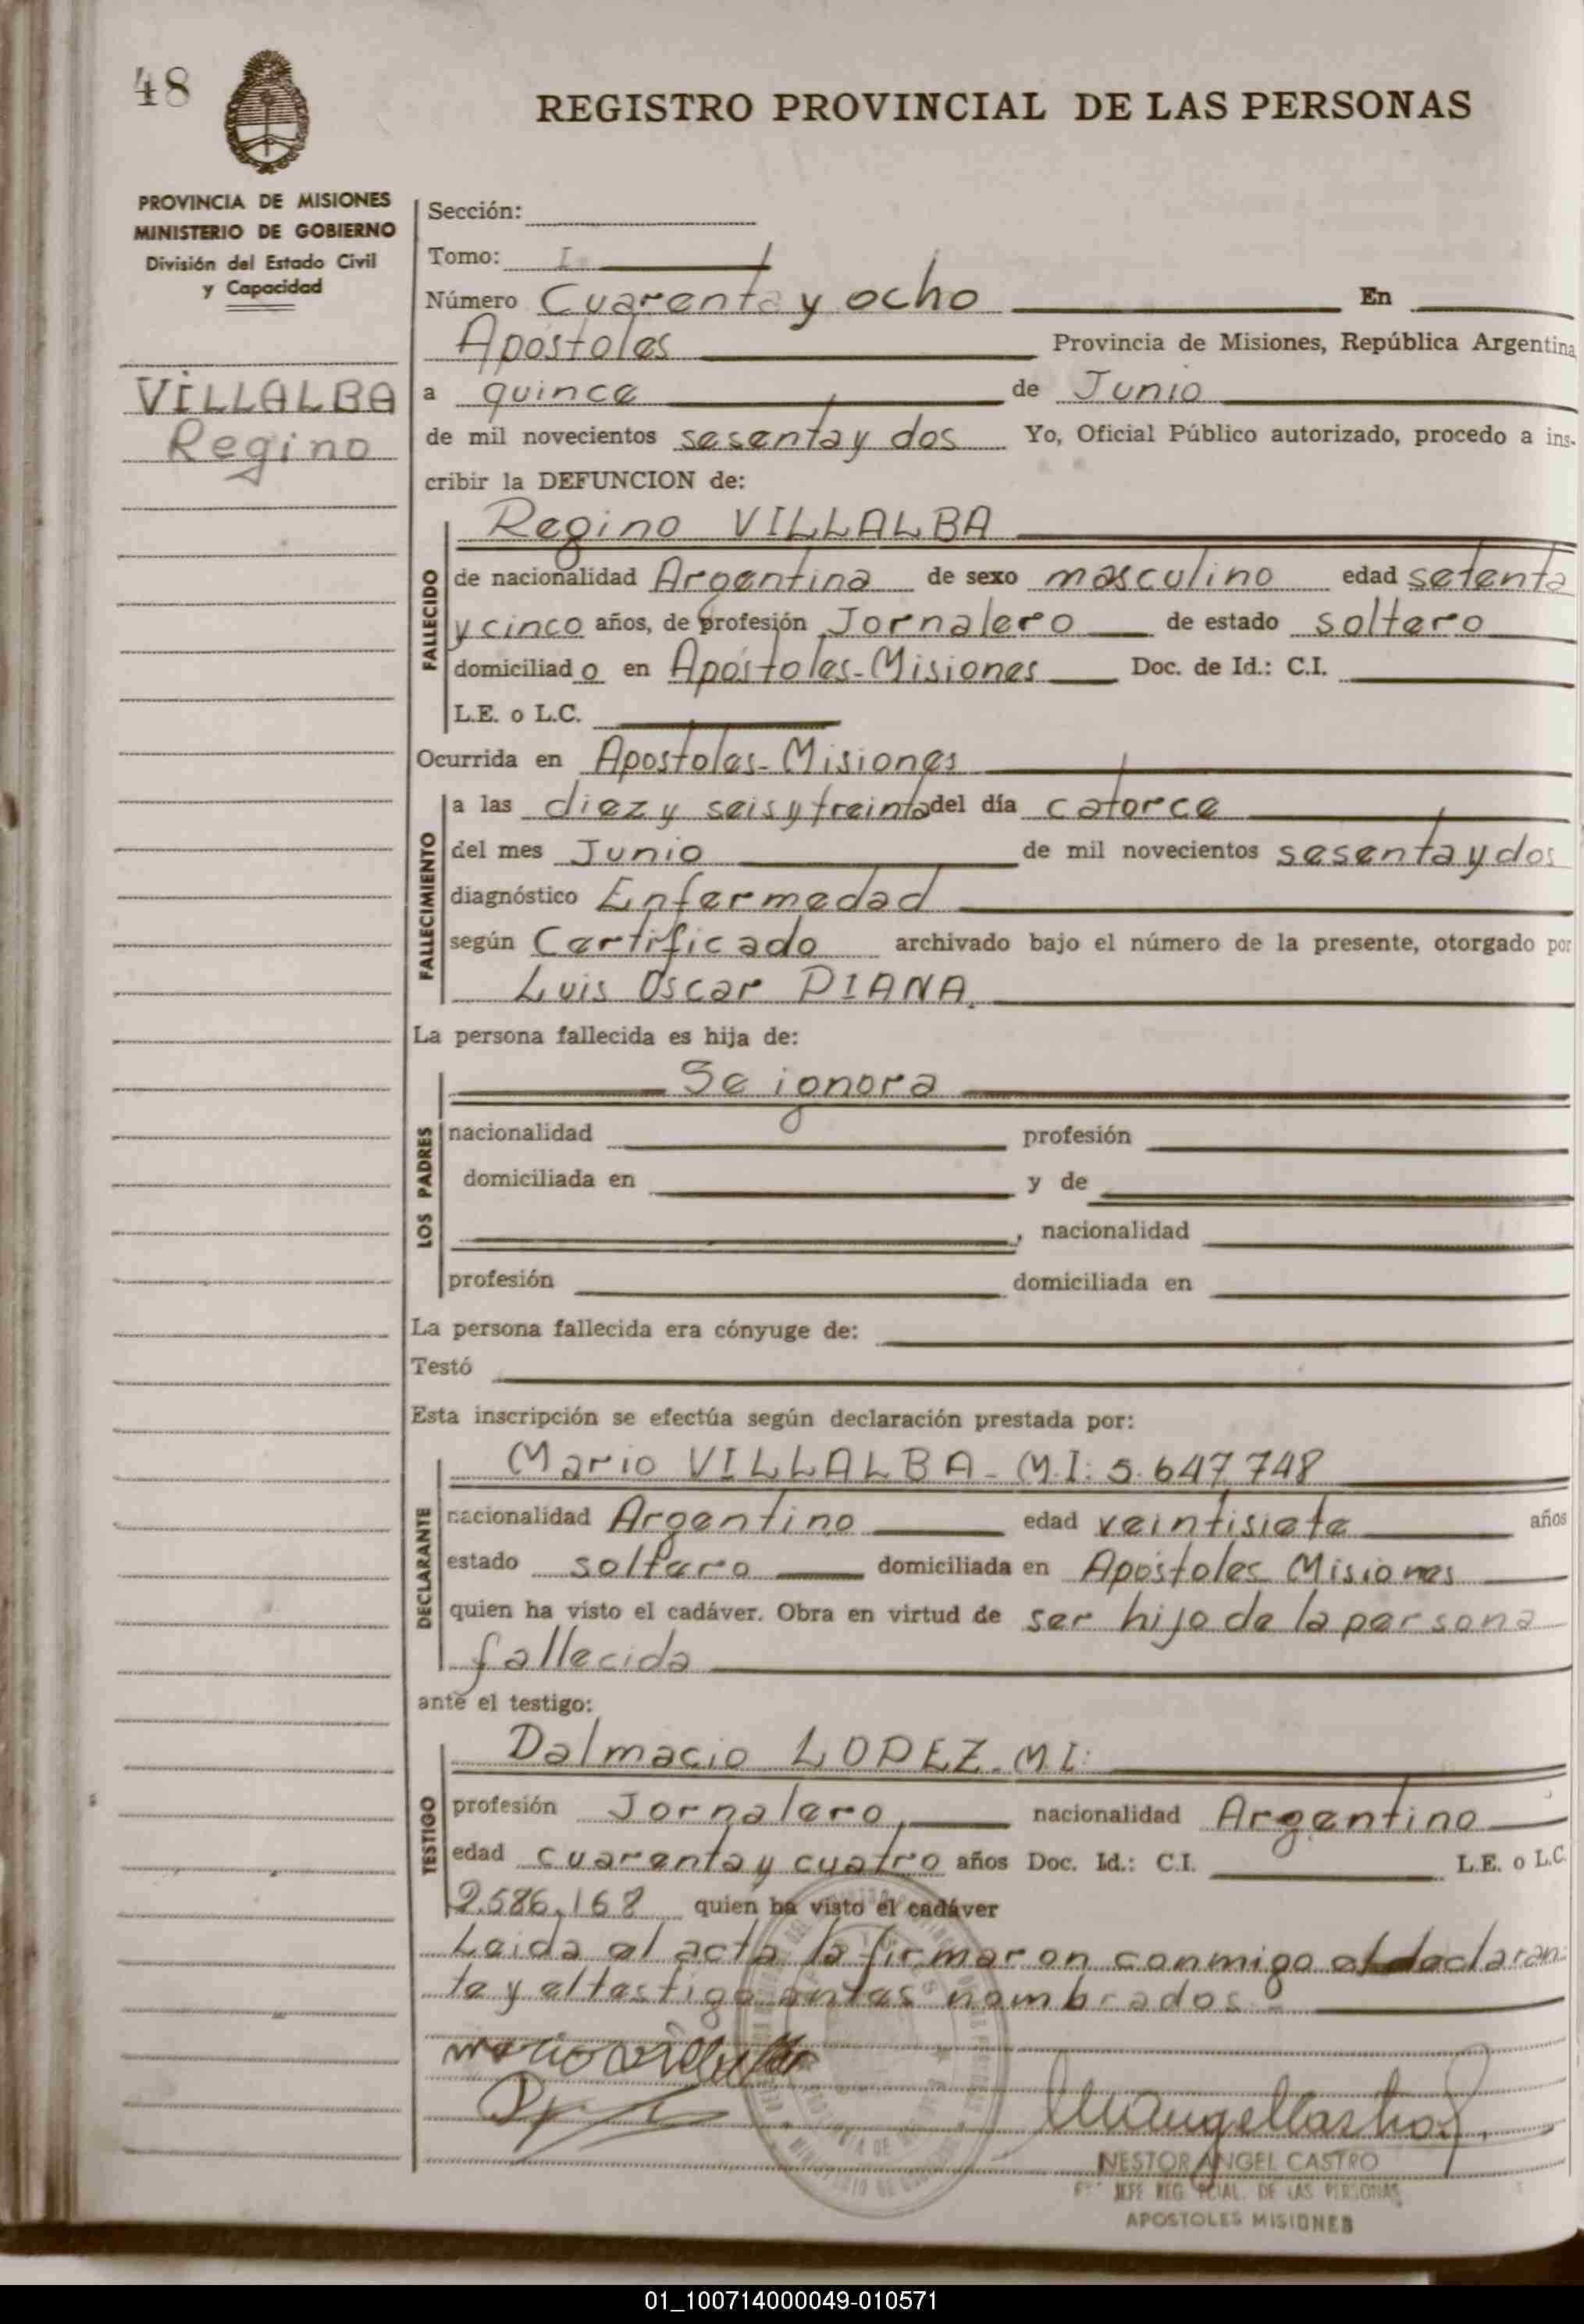 48
REGISTRO PROVINCIAL DE LAS PERSONAS
PROVINCIA DE MISIONES
MINISTERIO DE GOBIERNO
División del Estado Civil
y Capacidad
VILLALBA
Regino
Sección:
Tomo: I
Número Cuarenta y ocho En
Apóstoles Provincia de Misiones, República Argentina
a quince de Junio
de mil novecientos sesenta y dos Yo, Oficial Público autorizado, procedo a ins-
cribir la DEFUNCION de:
FALLECIDO
Regino VILLALBA
de nacionalidad Argentina de sexo masculino edad setenta
y cinco años, de profesión Jornalero de estado soltero
domiciliado en Apóstoles-Misiones Doc. de Id.: C.I.
L.E. o L.C.
Ocurrida en Apostoles-Misiones
FALLECIMIENTO
a las diez y seis y treinta del día catorce
del mes Junio de mil novecientos sesenta y dos
diagnóstico Enfermedad
según Certificado archivado bajo el número de la presente, otorgado por
Luis Oscar DIANA
La persona fallecida es hija de:
LOS PADRES
Se ignora
nacionalidad profesión
domiciliada en y de
, nacionalidad
profesión domiciliada en
La persona fallecida era cónyuge de:
Testó
Esta inscripción se efectúa según declaración prestada por:
DECLARANTE
Mario VILLALBA - M.I: 5.647.748
nacionalidad Argentino edad veintisiete años
estado soltero domiciliada en Apóstoles Misiones
quien ha visto el cadáver. Obra en virtud de ser hijo de la persona
fallecida
ante el testigo:
TESTIGO
Dalmacio LOPEZ - M.I:
profesión Jornalero nacionalidad Argentino
edad cuarenta y cuatro años Doc. Id.: C.I. L.E. o L.C.
2.586,168 quien ha visto el cadáver
Leida el acta la firmaron conmigo el declaran-
te y el testigo antes nombrados.-
Mario Villalba
NESTOR ANGEL CASTRO
JEFE REG. PCIAL. DE LAS PERSONAS
APOSTOLES MISIONES
01_100714000049-010571